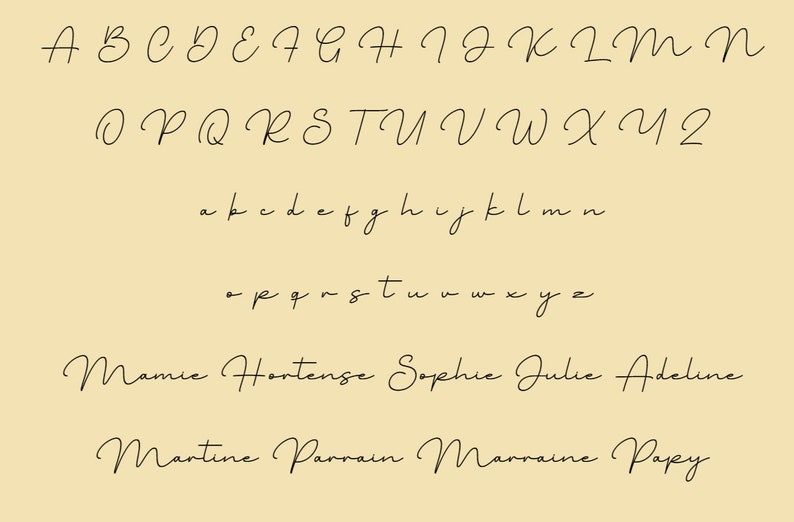 A B C D E F G H I J K L M N
O P Q R S T U V W X Y Z
a b c d e f g h i j k l m n
o p q r s t u v w x y z
Mamie Hortense Sophie Julie Adeline
Martine Parrain Marraine Papy